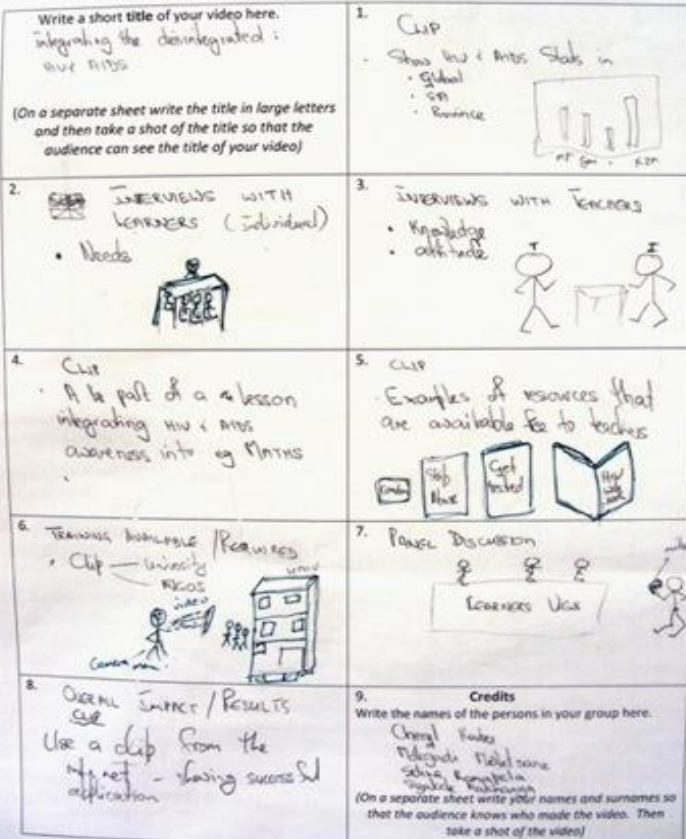 Write a short title of your video here.
integrating the desintegrated :
HIV & AIDS
(On a separate sheet write the title in large letters
and then take a shot of the title so that the
audience can see the title of your video)
1.
CLIP
Show HIV & AIDS Stats in
• Global
• SA
• Province
KZN
2.
INERVIEWS WITH
LEARNERS (individual)
• Needs
3.
INERVIEWS WITH TEACHERS
• Knowledge
• attitude
T
I
4.
CLIP
• A part of a lesson
integrating HIV & AIDS
awareness into eg MATHS
5.
CLIP
Examples of resources that
are available to teachers
Stop
Get
tested
6.
TRAINING AVAILABLE / REQUIRED
• Clip
NGOS
video
Camera man
7.
PANEL DISCUSSION
LEARNERS
8.
OVERALL IMPACT / RESULTS
CLIP
Use a clip from the
- showing successful
application
9.
Credits
Write the names of the persons in your group here.
Cheryl
(On a separate sheet write your names and surnames so
that the audience knows who made the video. Then
take a shot of the video)